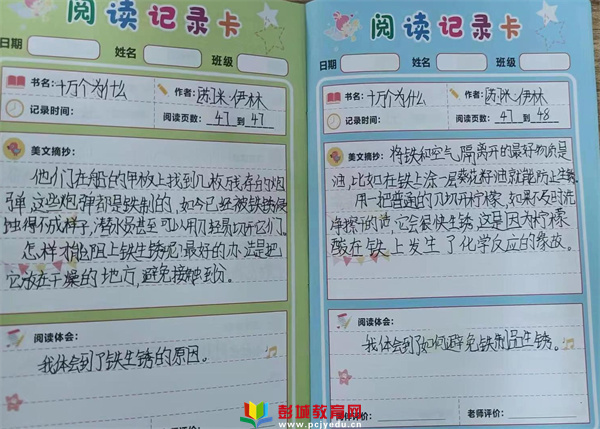 阅读记录卡
日期 姓名 班级
书名：十万个为什么 作者：苏·米·伊林
记录时间： 阅读页数：47到47
美文摘抄：
他们在船的甲板上找到几枚残存的炮
弹，这些炮弹都是铁制的，如今已经被铁锈侵
蚀得不成样子，潜水员甚至可以用刀轻易切开它们。
怎样才能阻止铁生锈呢？最好的办法是把
它放在干燥的地方，避免接触到水分。
阅读体会：
我体会到了铁生锈的原因。
阅读记录卡
日期 姓名 班级
书名：十万个为什么 作者：苏·米·伊林
记录时间： 阅读页数：47到48
美文摘抄：将铁和空气隔离开的最好物质是
油，比如在铁上涂一层葵花籽油就能防止生锈。
用一把普通的刀切开柠檬，如果不及时洗
净擦干的话，它会很快生锈，这是因为柠檬
酸在铁上发生了化学反应的缘故。
阅读体会：
我体会到了如何避免铁制品生锈。
家长评价： 老师评价：
彭城教育网
www.pcjyedu.cn